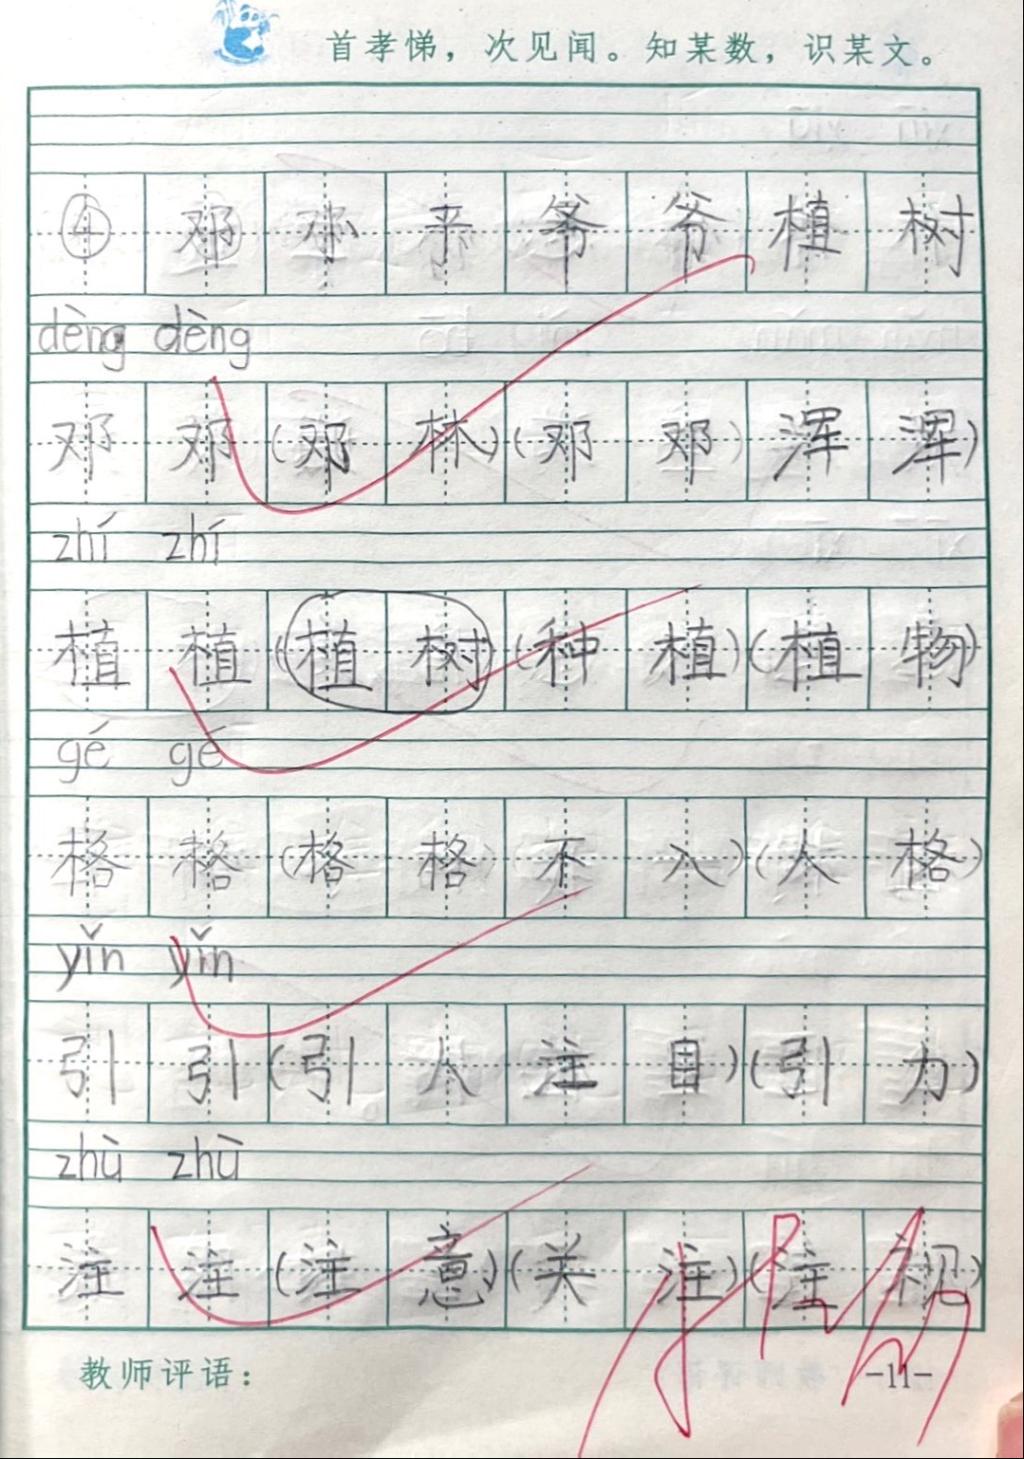 首孝悌，次见闻。知某数，识某文。
④邓小平爷爷植树
dèng dèng
邓邓(邓林)(邓邓浑浑)
zhí zhí
植植(植树)(种植)(植物)
gé gé
格格(格格不入)(人格)
yǐn yǐn
引引(引人注目)(引力)
zhù zhù
注注(注意)(关注)(注视)
教师评语：
-11-